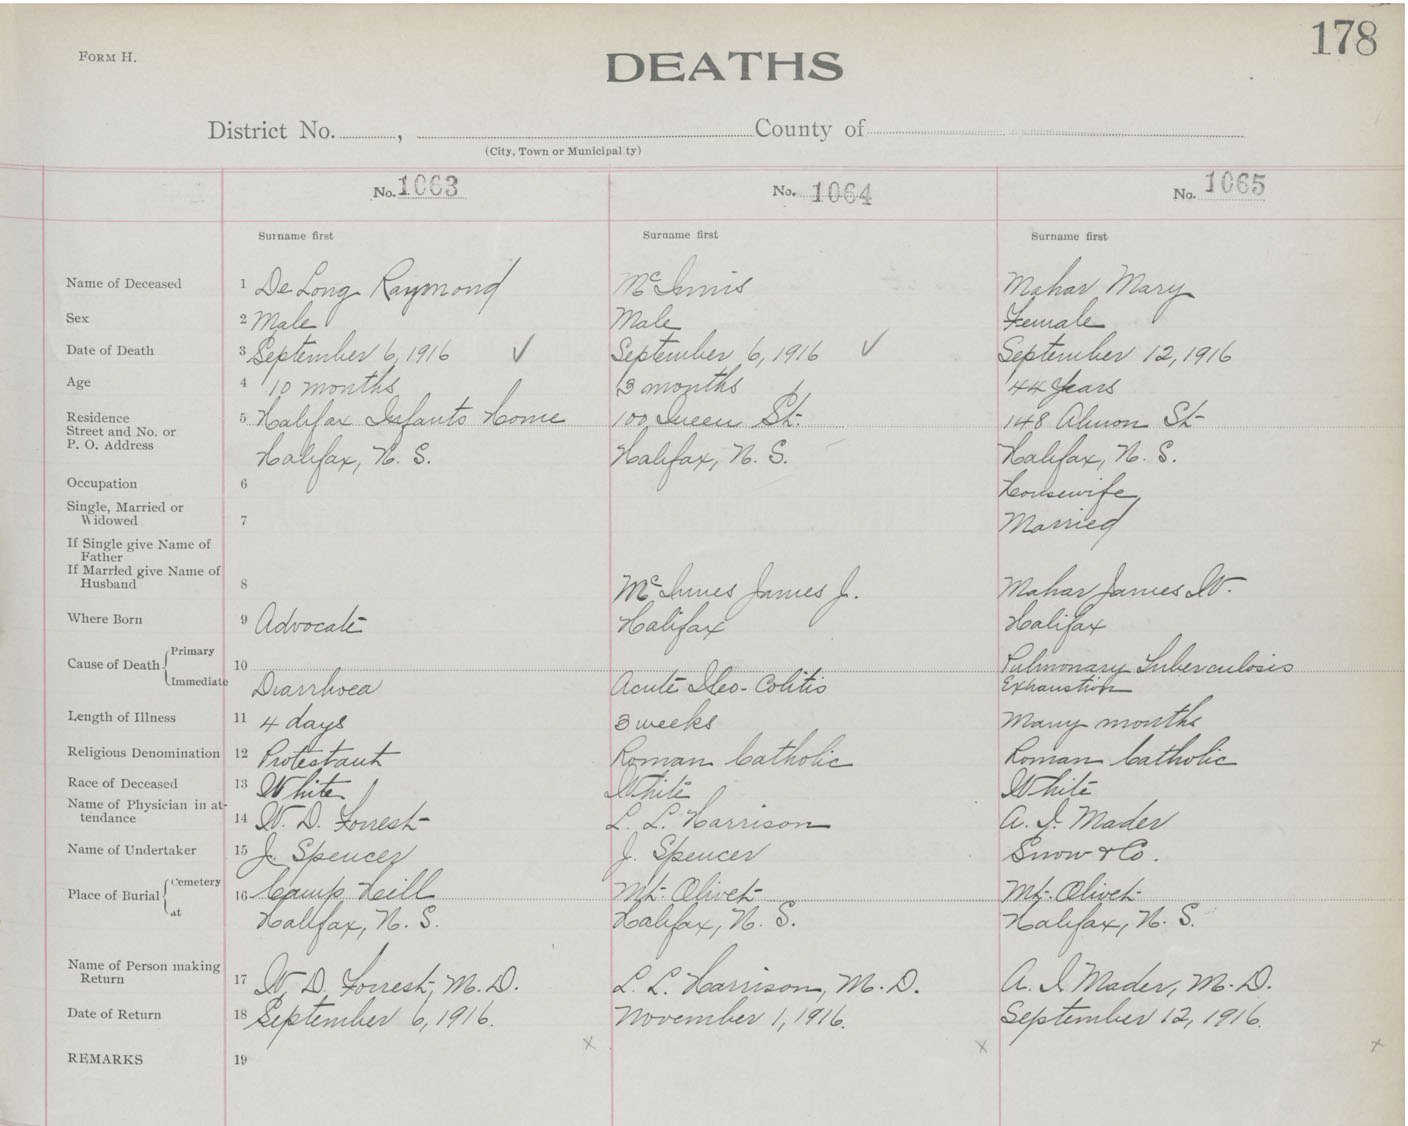 178
FORM H.
DEATHS
District No. , County of
(City, Town or Municipality)
No. 1063 No. 1064 No. 1065
Surname first Surname first Surname first
Name of Deceased 1 De Long Raymond McInnis Mahar Mary
Sex 2 Male Male Female
Date of Death 3 September 6, 1916 ✓ September 6, 1916 ✓ September 12, 1916
Age 4 10 months 3 months 44 Years
Residence 5 Halifax Infants Home 100 Queen St. 148 Almon St
Street and No. or
P. O. Address Halifax, N. S. Halifax, N. S. Halifax, N. S.
Occupation 6 Housewife
Single, Married or
Widowed 7 Married
If Single give Name of
Father
If Married give Name of
Husband 8 McInnes James J. Mahar James W.
Where Born 9 Advocate Halifax Halifax
Cause of Death Primary 10 Pulmonary Tuberculosis
Immediate Diarrhoea Acute Ileo-Colitis Exhaustion
Length of Illness 11 4 days 3 weeks Many months
Religious Denomination 12 Protestant Roman Catholic Roman Catholic
Race of Deceased 13 White White White
Name of Physician in at-
tendance 14 W. D. Forrest L. L. Harrison A. I. Mader
Name of Undertaker 15 J. Spencer J. Spencer Snow & Co.
Place of Burial Cemetery 16 Camp Hill Mt. Olivet Mt. Olivet
at Halifax, N. S. Halifax, N. S. Halifax, N. S.
Name of Person making
Return 17 W. D. Forrest, M. D. L. L. Harrison, M. D. A. I. Mader, M. D.
Date of Return 18 September 6, 1916. November 1, 1916. September 12, 1916.
x x x
REMARKS 19